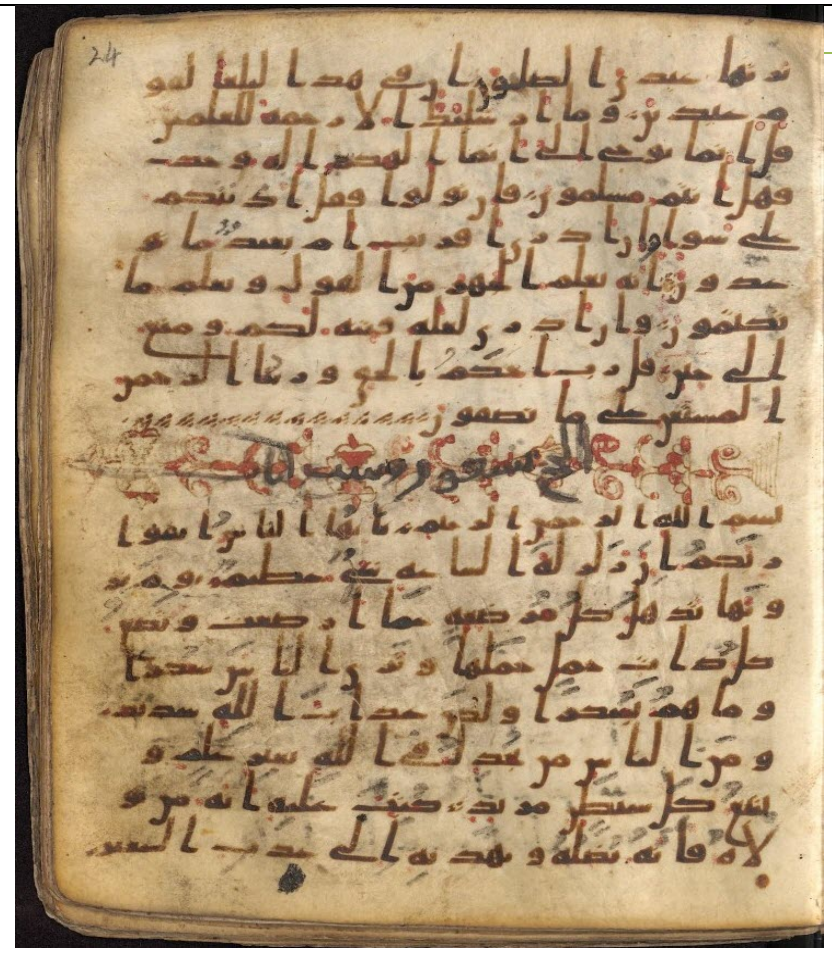 24
ير ثها عبدي الصلحون ان في هذا لبلغا لقو
م عبدين وما ارسلنك الا رحمة للعلمين
قل انما يوحى الي انما الهكم اله وحد
فهل انتم مسلمون فان تولوا فقل اذنتكم
على سوا وان ادري اقريب ام بعيد ما تو
عدون انه يعلم الجهر من القول ويعلم ما
تكتمون وان ادري لعله فتنة لكم ومتع
الى حين قل رب احكم بالحق وربنا الرحمن
المستعن على ما تصفون
الحج سبعون وست ايات
بسم الله الرحمن الرحيم يايها الناس اتقوا
ربكم ان زلزلة الساعة شي عظيم يوم تر
ونها تذهل كل مرضعة عما ارضعت وتضع
كل ذات حمل حملها وترى الناس سكرى
وما هم بسكرى ولكن عذاب الله شديد
ومن الناس من يجدل في الله بغير علم و
يتبع كل شيطن مريد كتب عليه انه من تو
لاه فانه يضله ويهديه الى عذاب السعير